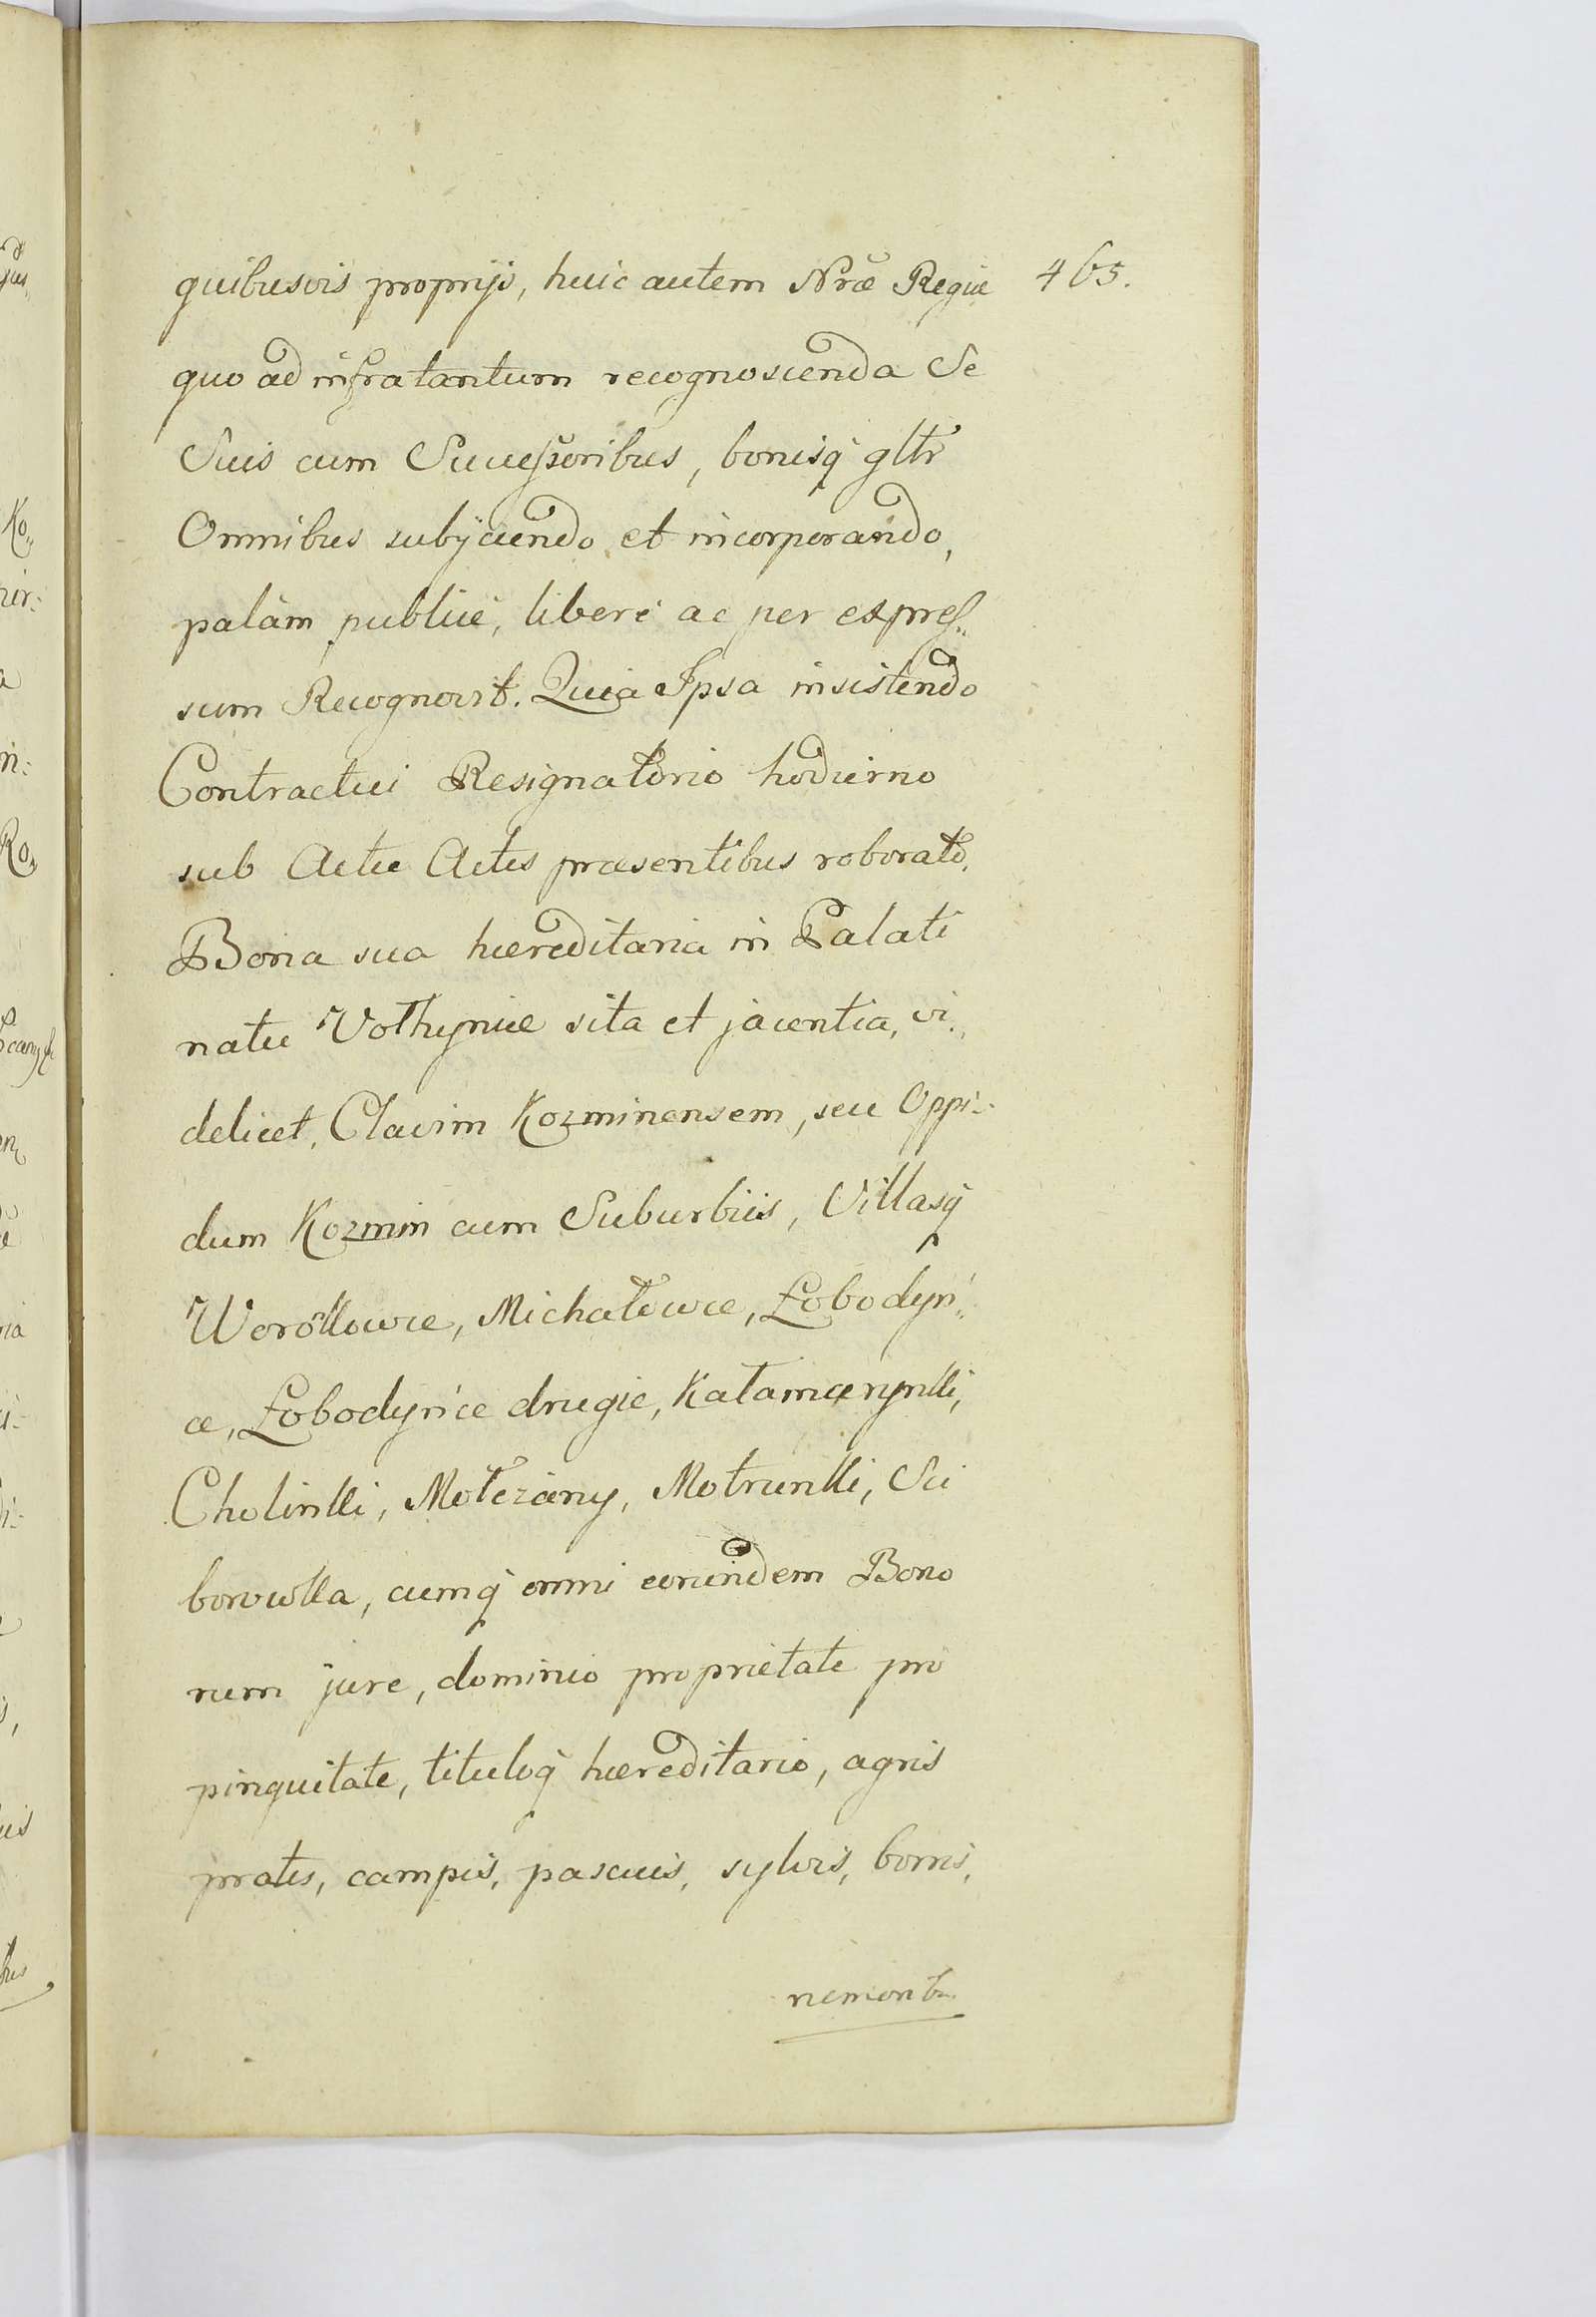 quibusvis proprijs, huic autem Nrae Regiae 465.
quo ad infra tantum recognoscenda Se
Suis cum Successoribus, bonisq̃ gltr
Omnibus subijciendo et incorporando,
palàm publicè, liberè ac per expres„
sum Recognovit. Quia Ipsa insistendo
Contractui Resignatorio hodierno
sub Actu Actis praesentibus roborato,
Bona sua haereditaria in Palati
natu Volhyniae sita et jacentia, vi„
delicet, Clavim Kozminensem, seu Oppi„
dum Kozmin cum Suburbiis, Villasq̃
Woróbkowce, Michałowce, Łobodyń„
ce, Łobodyńce drugie, Katamarynki,
Cholinki, Motczany, Motrunki, Sci
borowka, cumq̃ omni eorundem Bono
rum jure, dominio proprietate pro
pinquitate, tituloq̃ haereditario, agris
pratis, campis, pascuis, sylvis, borris,
nemorib9